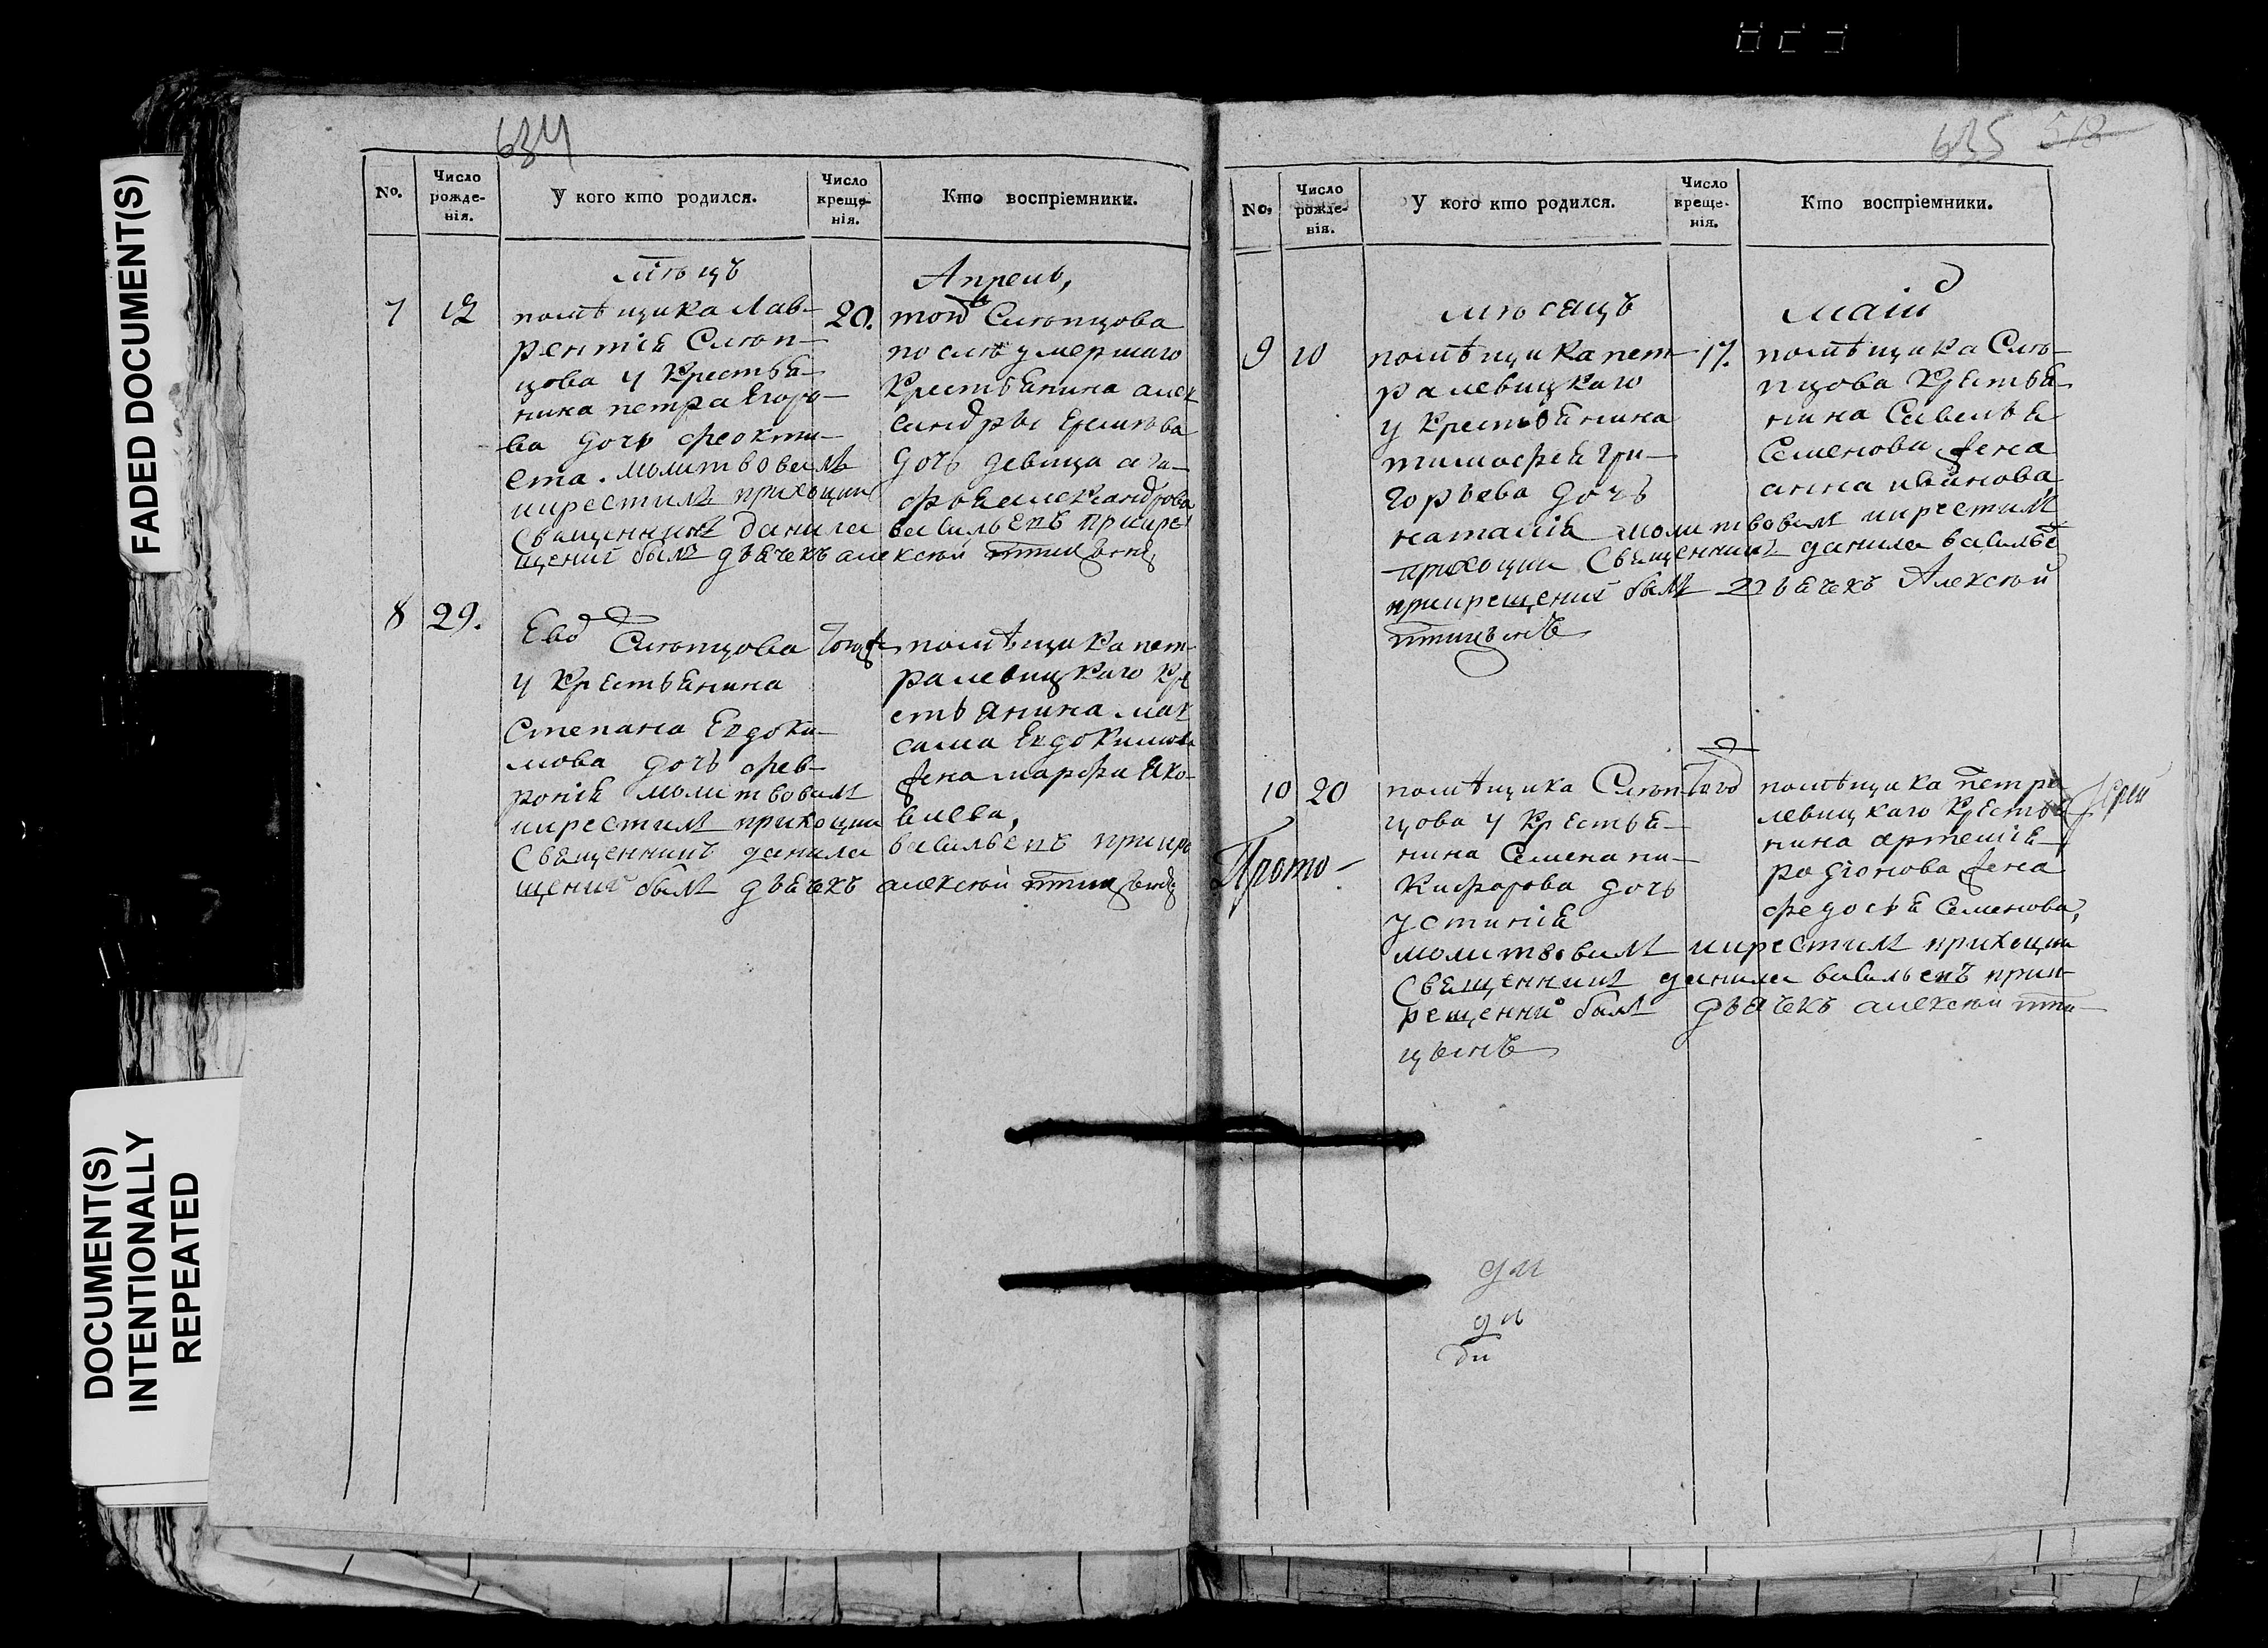 FADED DOCUMENT(S)
DOCUMENT(S)
INTENTIONALLY
REPEATED
634
No.
Число
рожде-
нія.
У кого кто родился.
Число
креще-
нія.
Кто воспріемники.
7
20.
помѣщика Лав-
рентія Слѣп-
цова у Крестья-
нина петра Егоро-
ва дочь феокти-
ста. молитвовалъ
икрестилъ приходцкій
Священникъ данила васильевъ прикре
щеніи былъ дьячекъ алексѣй
Апрель,
Слѣпцова
послѣ умершаго
Крестьянина алек
сандры
дочь девица ага-
фья александрова
8
29.
Слѣпцова
у Крестьянина
Степана Евдоки-
мова дочь фев-
ронія молитвовалъ
икрестилъ приходцкій
Священникъ данила васильевъ прикре
щеніи былъ дьячекъ алексѣй
помѣщика пет
ралевицкаго кре
стьянина мак
сима Евдокимова
жена марфа Яко-
влева,
635 518
No.
Число
рожде-
нія.
У кого кто родился.
Число
креще-
нія.
Кто воспріемники.
мѣсяцъ
маій
9
10
17.
помѣщика пет-
ралевицкаго
у крестьянина
тимофея гри-
горьева дочь
наталія молитвовалъ икрестилъ
приходцкій Священникъ данила васильевъ
прикрещеніи былъ дьячекъ Алексѣй
птицынъ
помѣщика Слѣ-
пцова Крестья-
нина Савелья
Семенова жена
анна иванова,
10
20
того
помѣщика Слѣп-
цова у Крестья-
нина Семена ни-
кифорова дочь
устинія
молитвовалъ икрестилъ приходцкій
Священникъ данила васильевъ прик-
рещеніи былъ дьячекъ алексѣй пти-
цынъ
помѣщика петра
левицкаго Крестья
нина артемія
родіонова жена
федосья Семенова,
Прото-
іерей